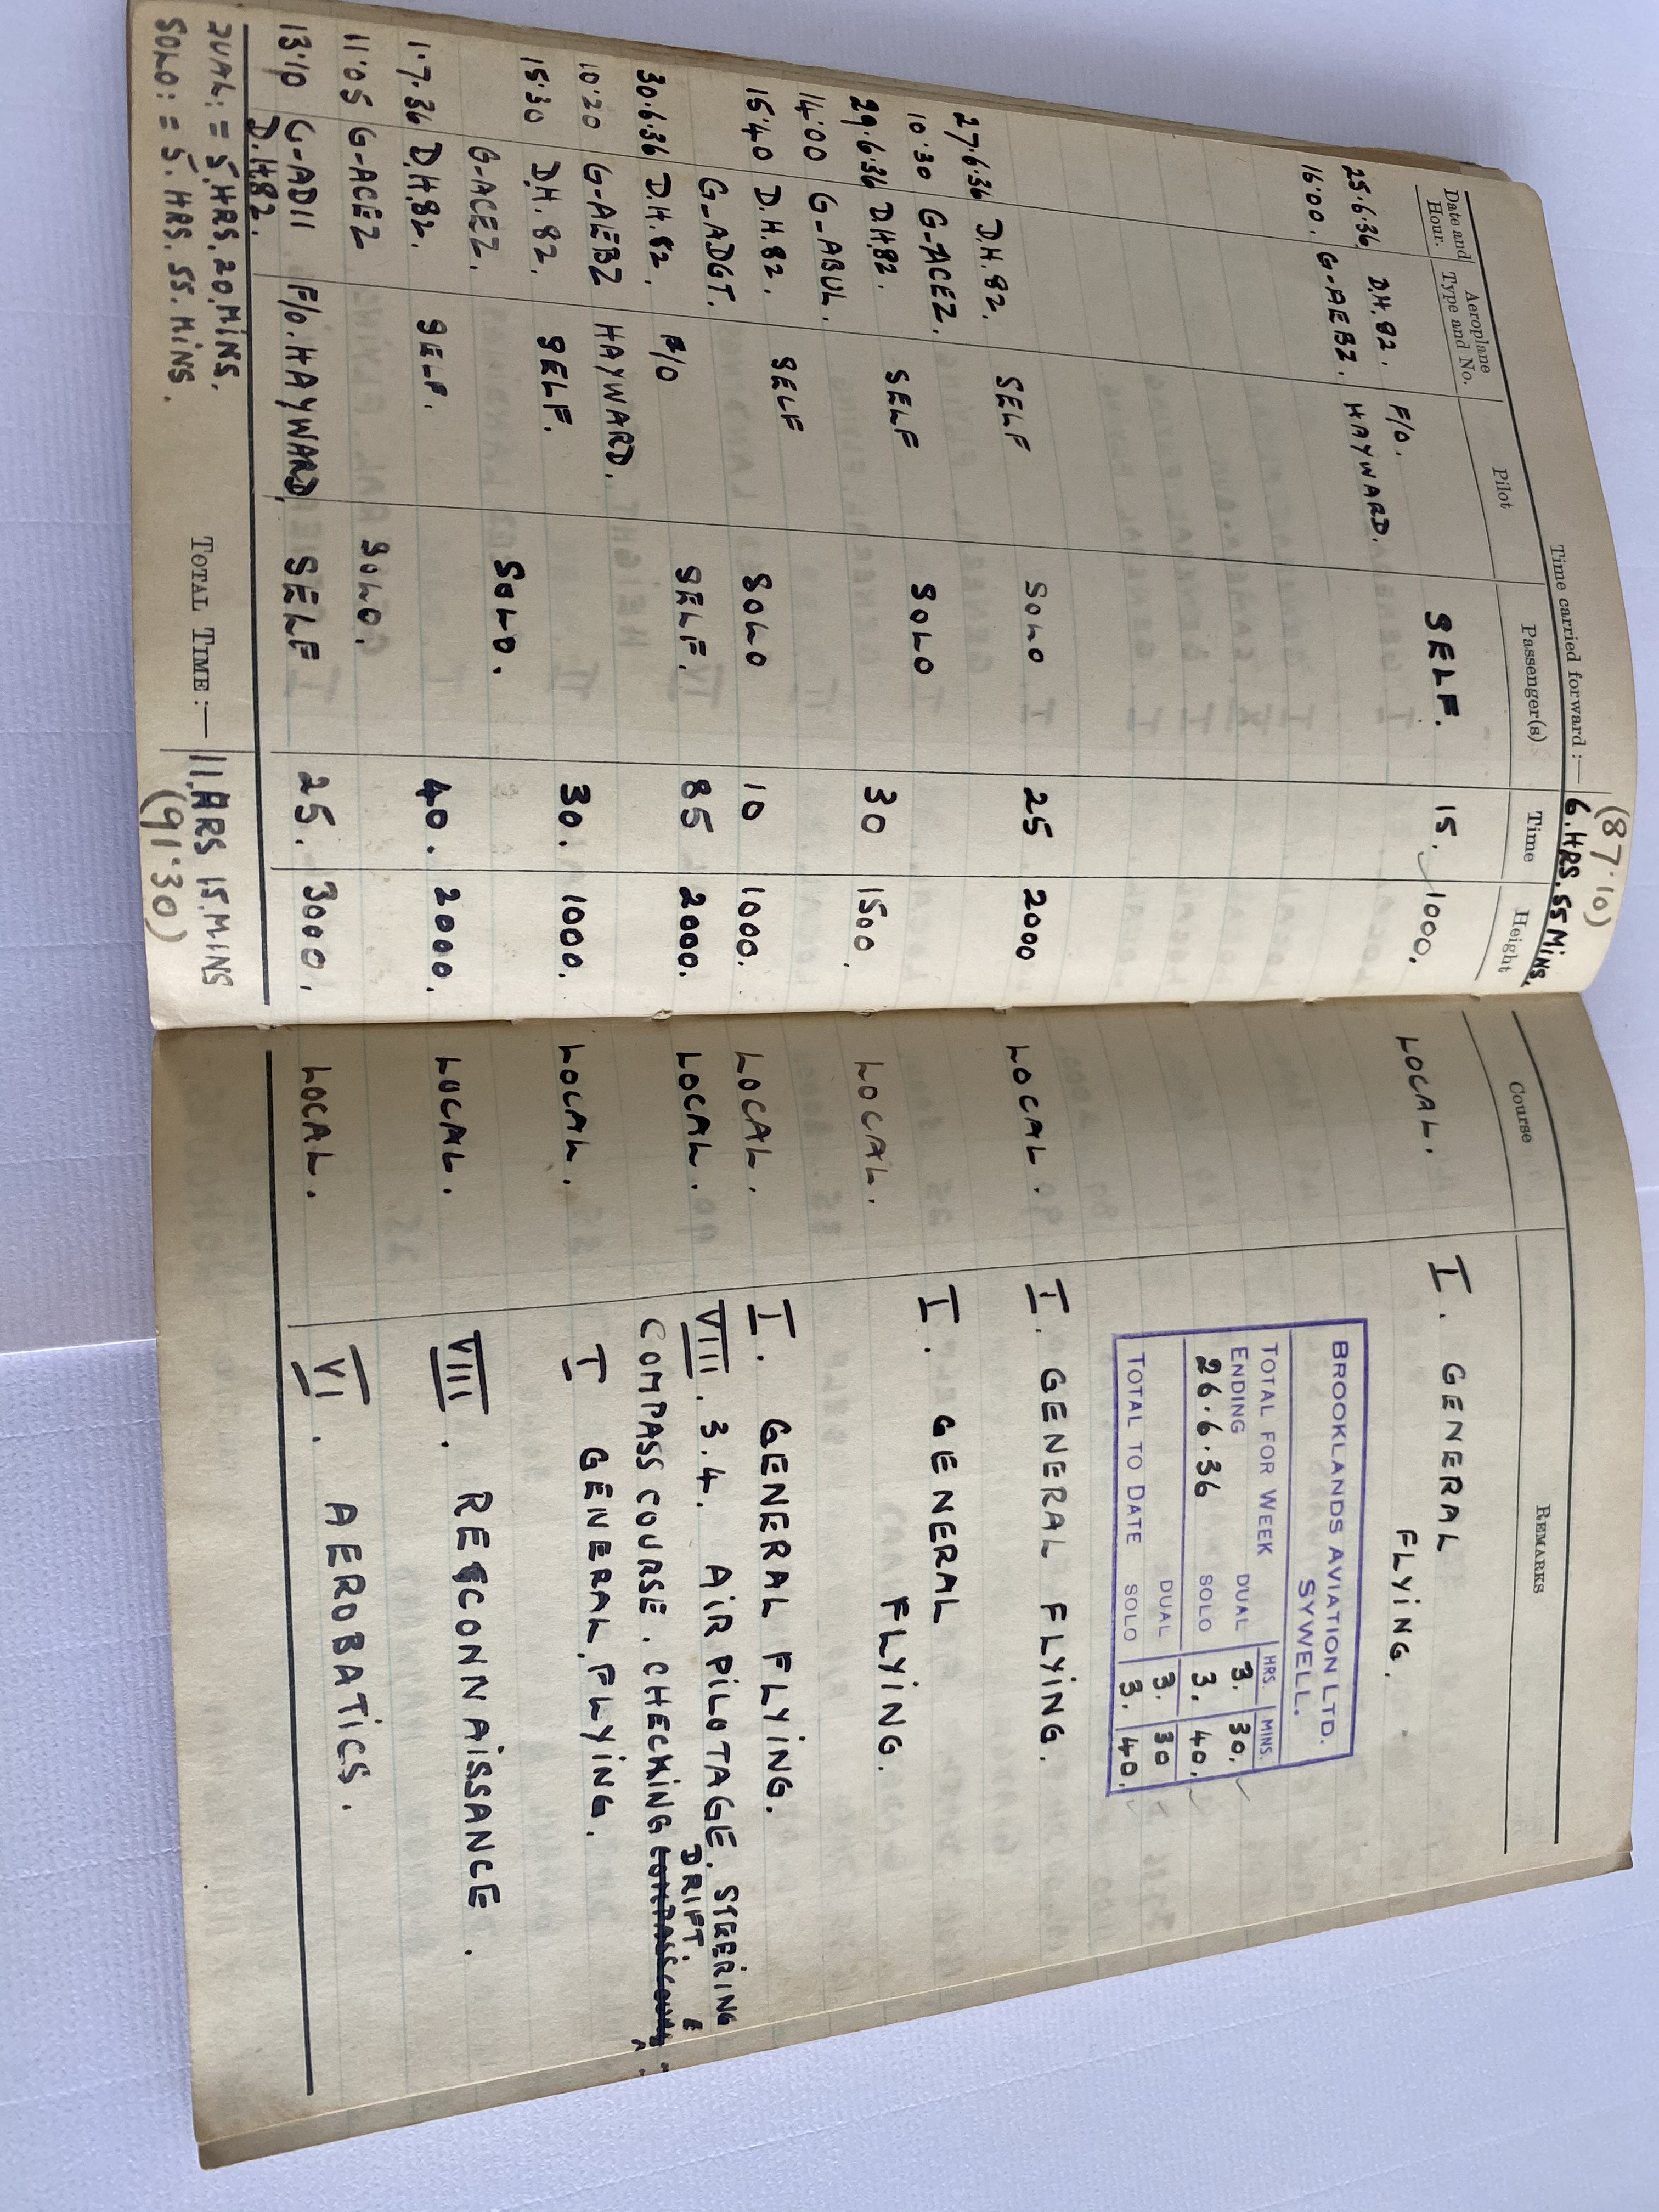 (87·10)
Time carried forward :— 6.HRS.55 MINS.
Date and Hour. Aeroplane Type and No. Pilot Passenger(s) Time Height Course REMARKS
25.6.36 D.H.82. F/O. SELF. 15. 1000. LOCAL. I. GENERAL
16·00. G-AEBZ. HAYWARD. FLYING.
BROOKLANDS AVIATION LTD.
SYWELL.
HRS. MINS.
TOTAL FOR WEEK DUAL 3. 30.
ENDING
26·6·36 SOLO 3. 40.
DUAL 3. 30
TOTAL TO DATE SOLO 3. 40.
27.6.36 D.H.82. SELF SOLO 25 2000 LOCAL. I. GENERAL FLYING.
10·30 G-ACEZ.
29.6.36 D.H.82. SELF SOLO 30 1500. LOCAL. I. GENERAL
14·00 G-ABUL. FLYING.
15·40 D.H.82. SELF SOLO 10 1000. LOCAL. I. GENERAL FLYING.
G-ADGT.
30.6.36 D.H.82. F/O SELF. 85 2000. LOCAL. VIII. 3.4. AIR PILOTAGE. STEERING
10·20 G-AEBZ HAYWARD. COMPASS COURSE. CHECKING DRIFT. &
15·30 D.H.82. SELF. SOLO. 30. 1000. LOCAL. I GENERAL FLYING.
G-ACEZ.
1·7·36 D.H.82. SELF. SOLO. 40. 2000. LOCAL. VIII. RECONNAISSANCE.
11·05 G-ACEZ
13·10 G-ADII F/O. HAYWARD, SELF 25. 3000. LOCAL. VI. AEROBATICS.
D.H.82.
DUAL: = 5.HRS.20.MINS. TOTAL TIME :— 11.HRS 15.MINS
SOLO: = 5.HRS.55.MINS. (91·30)